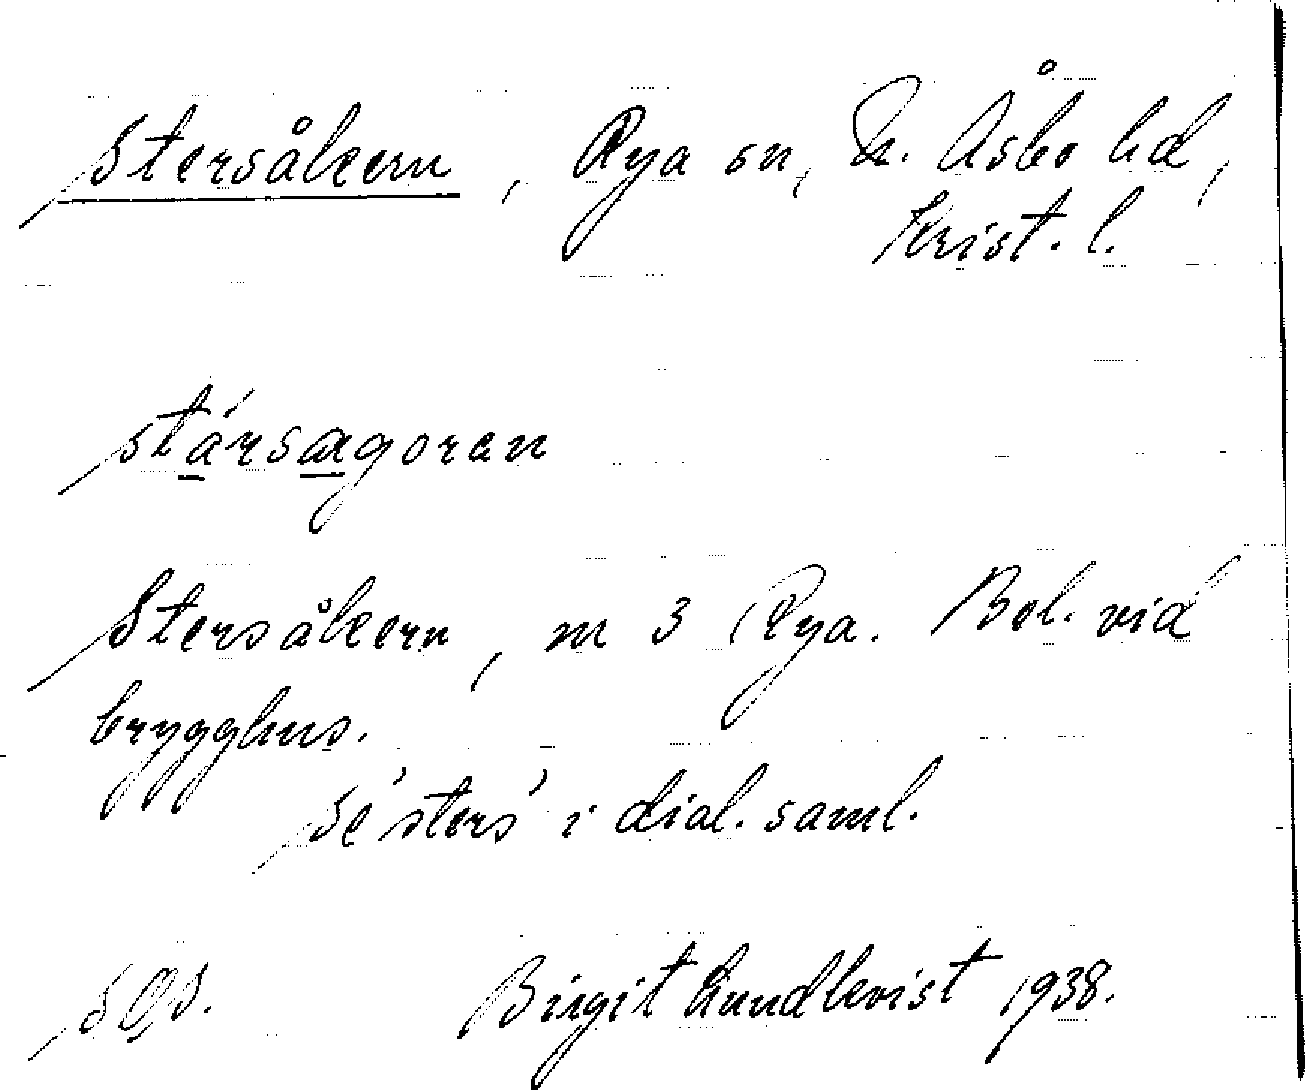 Stersåkern, Rya sn, N. Åsbo hd,
Krist. l.
stársægoren
Stersåkern, m 3 Rya. Bel. vid
brygghus.
Se 'sters' i dial. saml.
Birgit Lundkvist 1938.